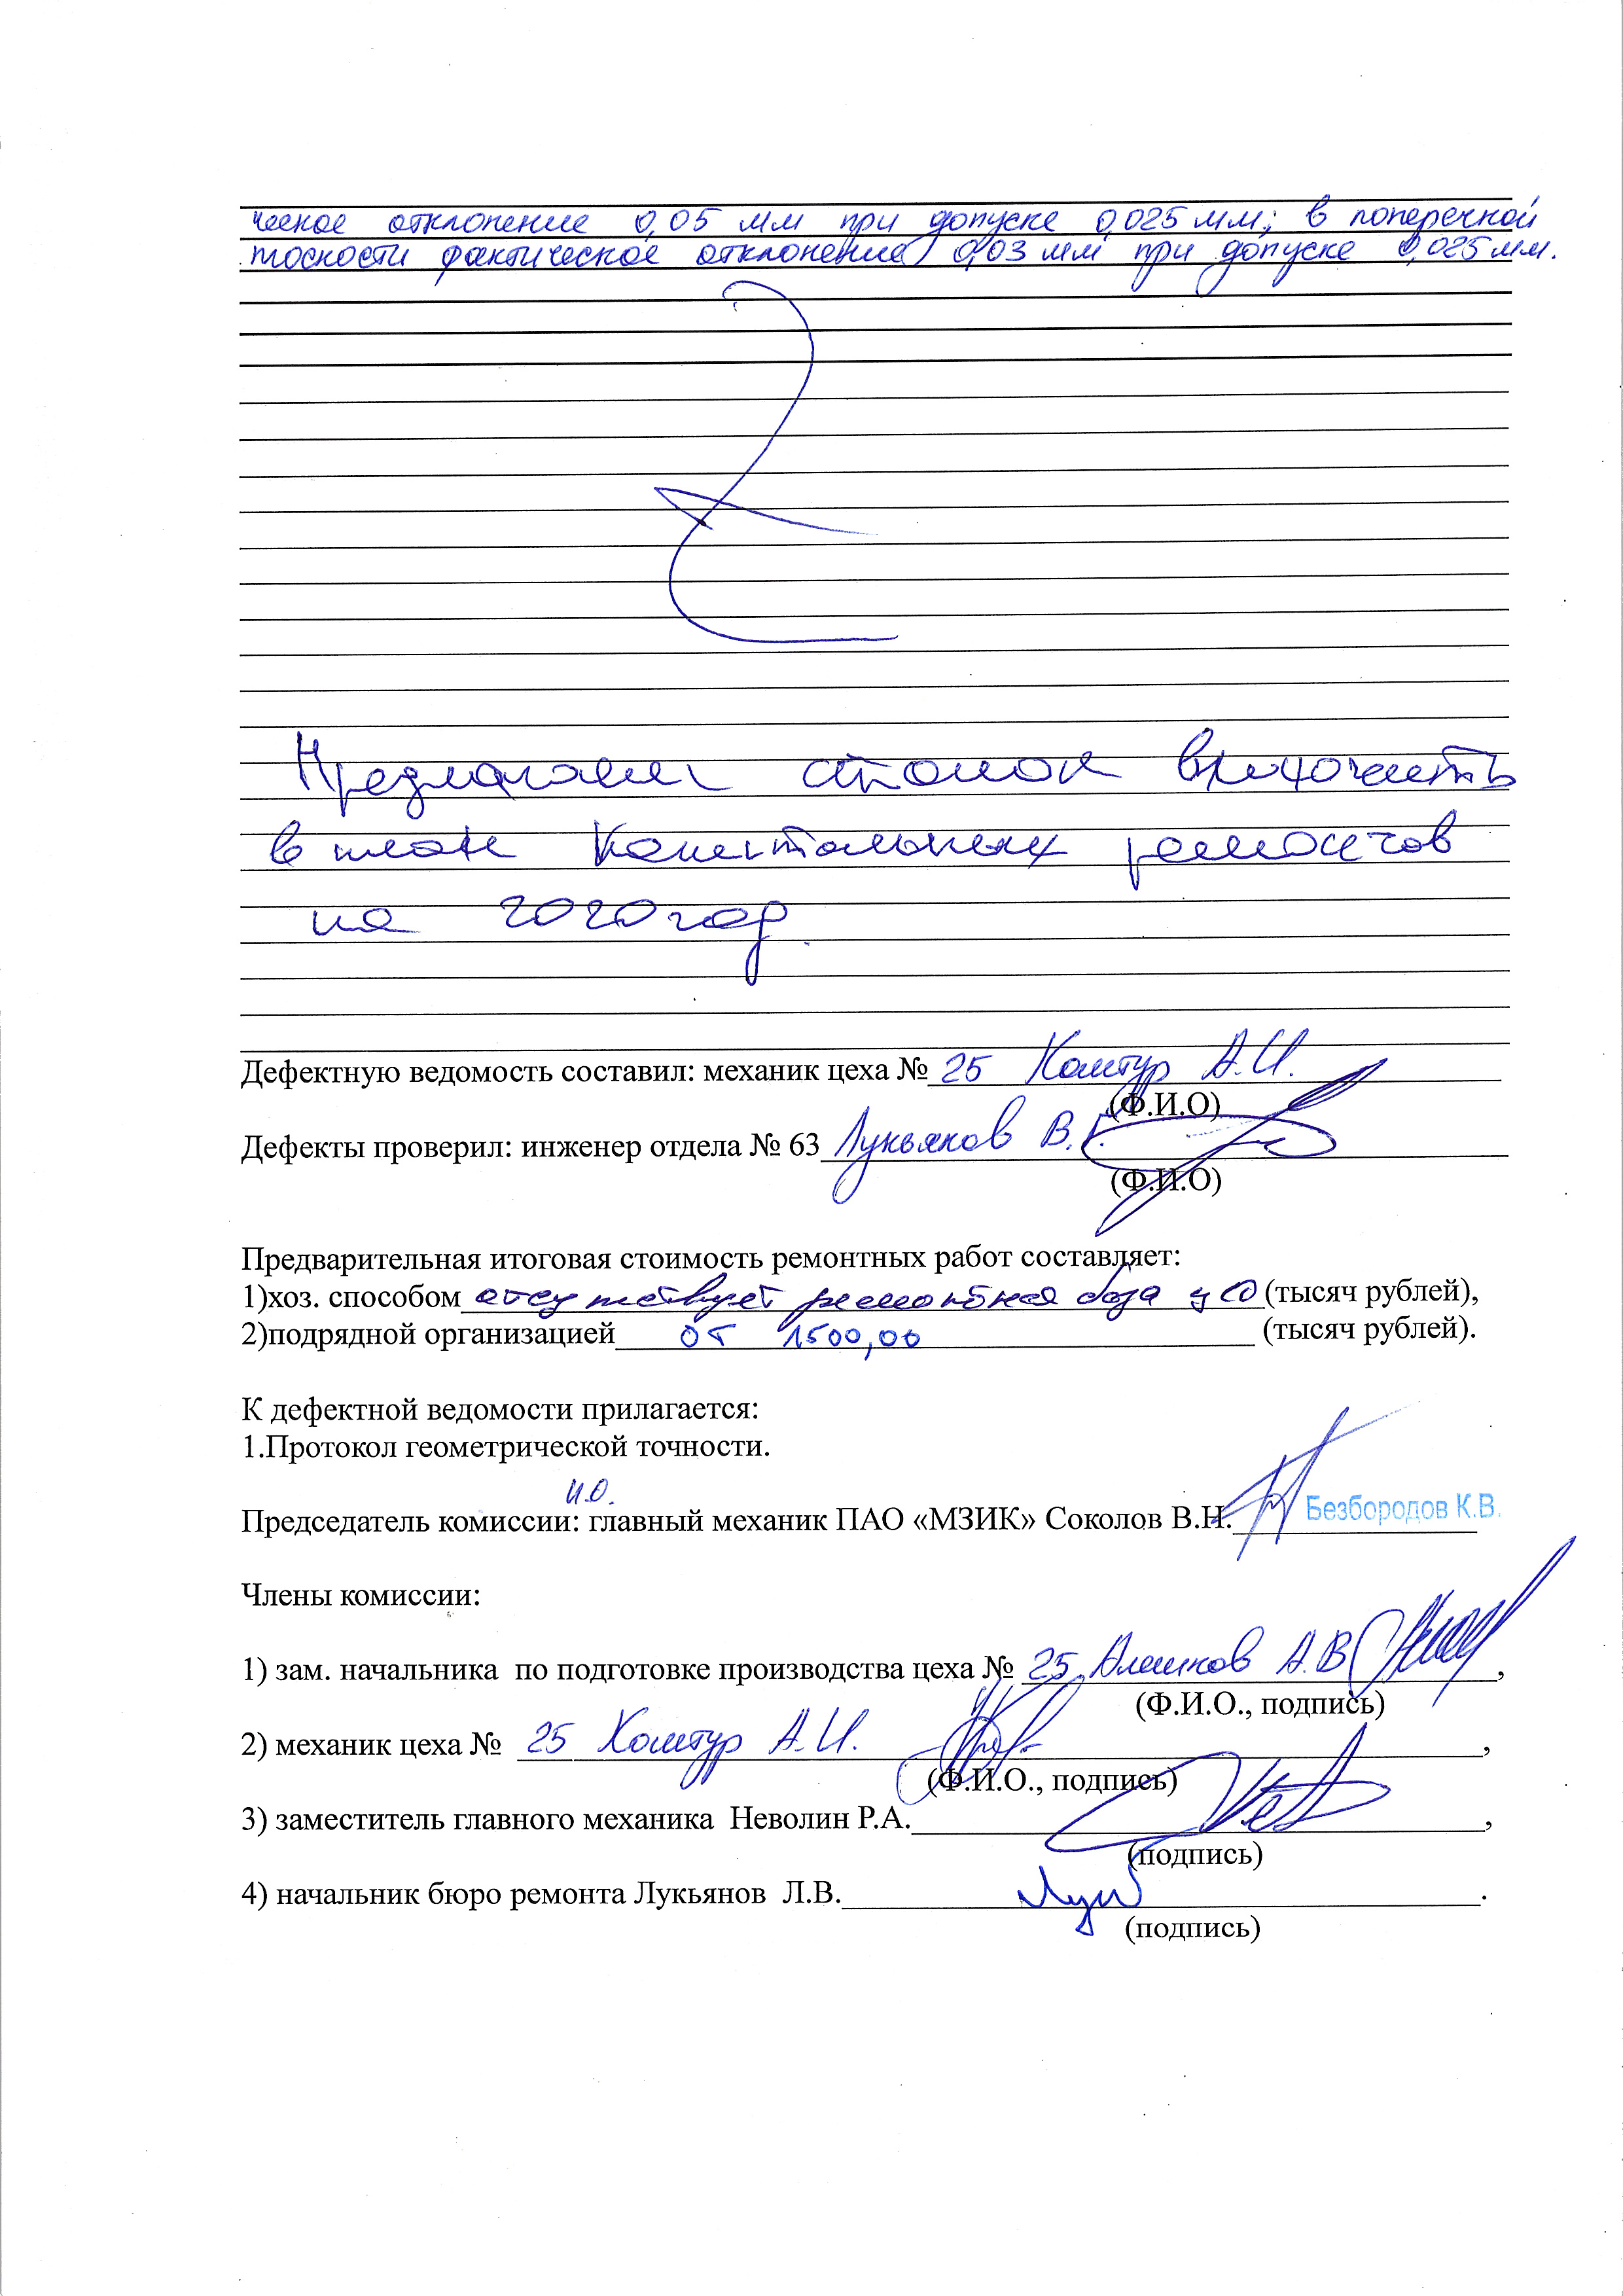 ческое отклонение 0,05 мм при допуске 0,025 мм; в поперечной
плоскости фактическое отклонение 0,03 мм при допуске 0,025 мм.
Предлагаем станок включить
в план капитальных ремонтов
на 2020 год
Дефектную ведомость составил: механик цеха № 25 Комтур А.И.
(Ф.И.О)
Дефекты проверил: инженер отдела № 63 Лукьянов В.Г.
(Ф.И.О)
Предварительная итоговая стоимость ремонтных работ составляет:
1)хоз. способом отсутствует ремонтная база (тысяч рублей),
2)подрядной организацией от 1500,00 (тысяч рублей).
К дефектной ведомости прилагается:
1.Протокол геометрической точности.
и.о.
Председатель комиссии: главный механик ПАО «МЗИК» Соколов В.Н. Безбородов К.В.
Члены комиссии:
1) зам. начальника по подготовке производства цеха № 25 А.В
(Ф.И.О., подпись)
2) механик цеха № 25 Комтур А.И.
(Ф.И.О., подпись)
3) заместитель главного механика Неволин Р.А. ,
(подпись)
4) начальник бюро ремонта Лукьянов Л.В. .
(подпись)